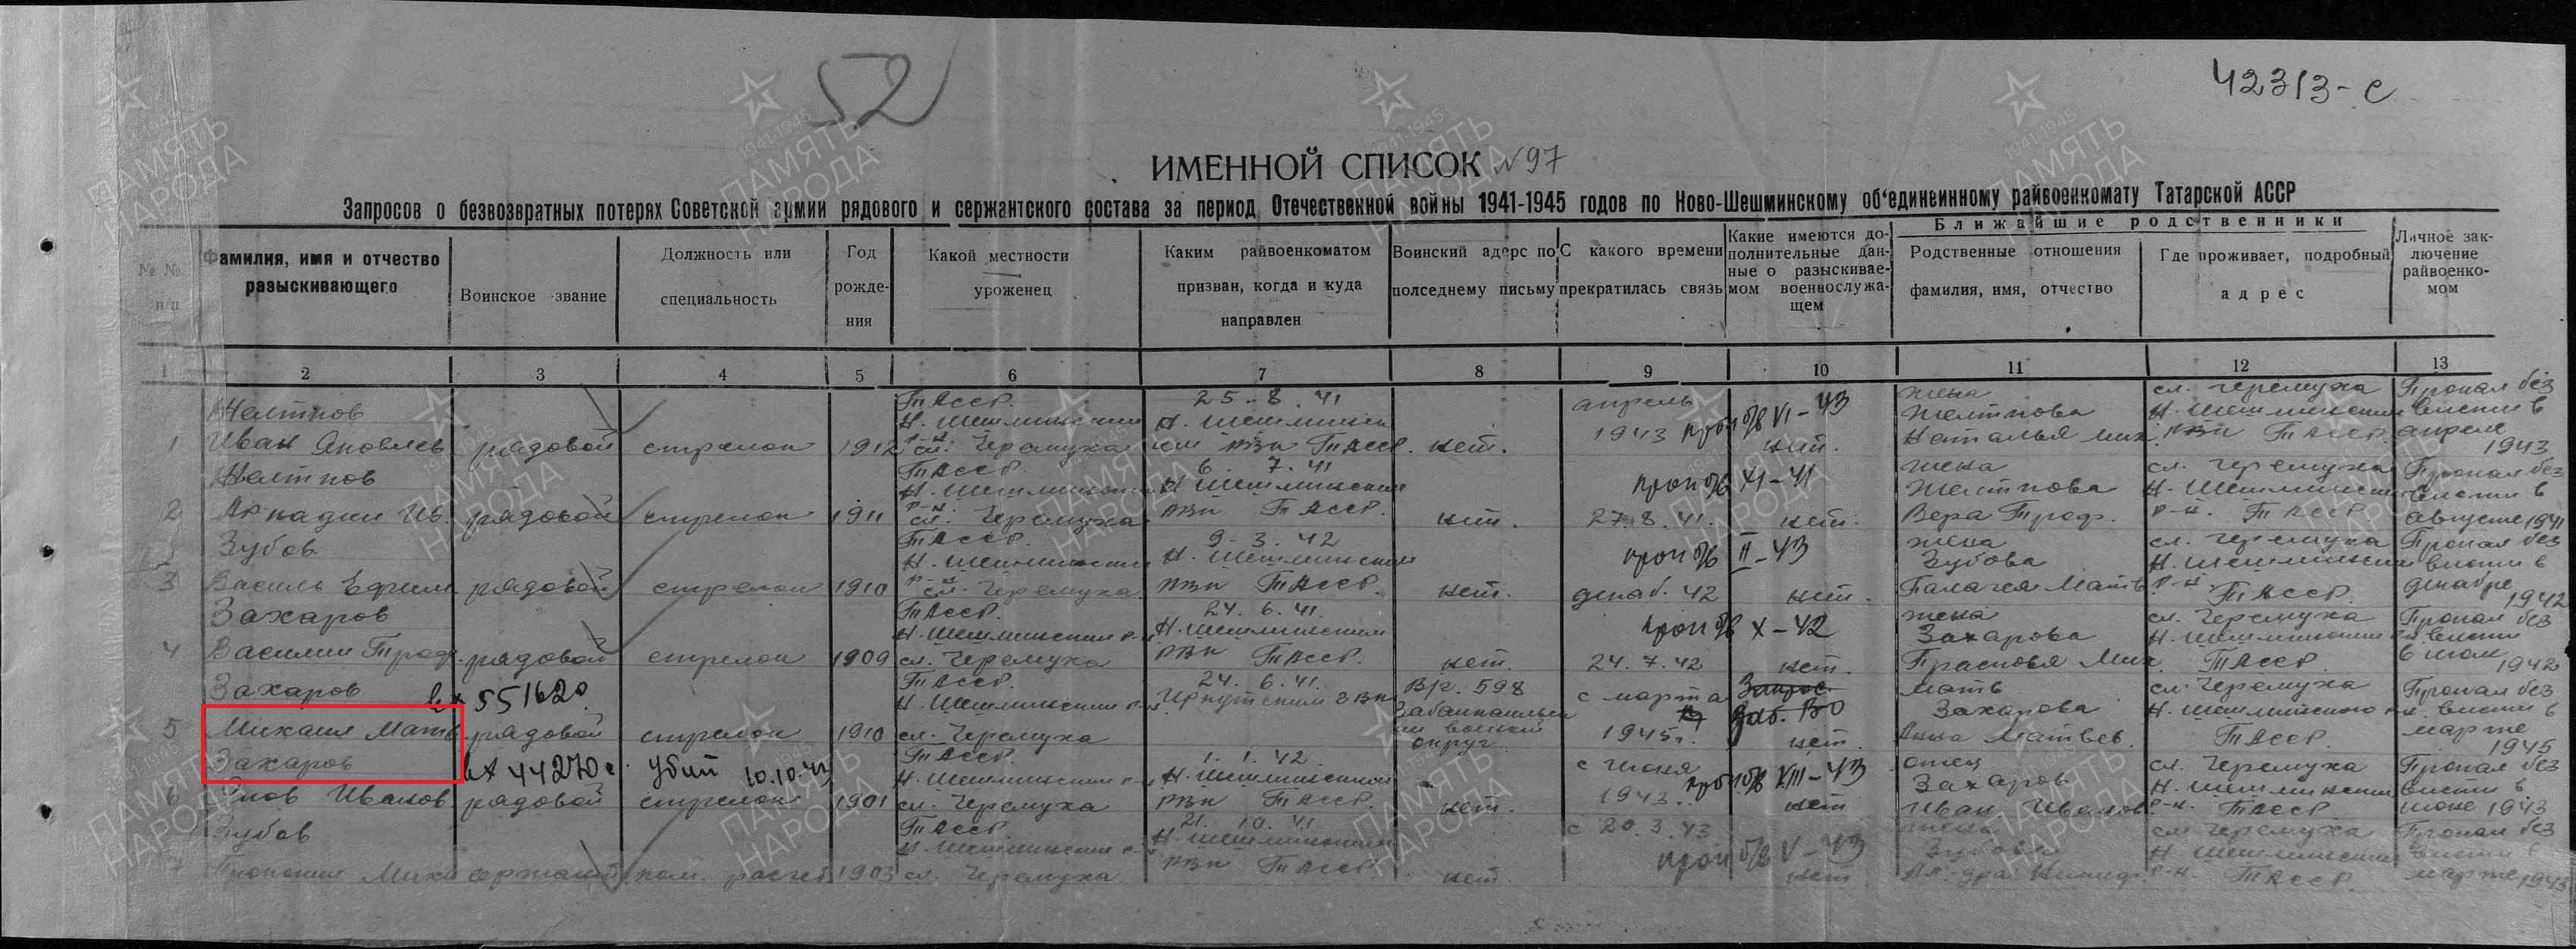 52
42313-с
ИМЕННОЙ СПИСОК №97
Запросов о безвозвратных потерях Советской армии рядового и сержантского состава за период Отечественной войны 1941-1945 годов по Ново-Шешминскому об‘единеинному райвоенкомату Татарской АССР
№ № п/п
Фамилия, имя и отчество разыскивающего
Воинское звание
Должность или специальность
Год рожде-ния
Какой местности уроженец
Каким райвоенкоматом призван, когда и куда направлен
Воинский адерс по полседнему письму
С какого времени прекратилась связь
Какие имеются до-полнительные дан-ные о разыскивае-мом военнослужа-щем
Ближайшие родственники
Родственные отношения фамилия, имя, отчество
Где проживает, подробный адрес
Личное зак-лючение райвоенко-мом
1 2 3 4 5 6 7 8 9 10 11 12 13
Желтнов ТАССР. 25.8.41 апрель жена сл. Черемуха Пропал без
Н. Шешминский Н. Шешминск проп б/в VI-43 Желтнова Н. Шешминский вести в
1 Иван Яковлев рядовой стрелок 1912 сл. Черемуха РВК ТАССР. нет. 1943 нет. Наталья Мих. РВК ТАССР. апреле 1943
Желтнов ТАССР. 6.7.41 жена сл. Черемуха Пропал без
Н. Шешминский Н Шешминский проп б/в XI-41 Желтнова Н. Шешминский вести в
2 Аркадий Ив. рядовой стрелок 1911 сл. Черемуха РВК ТАССР. нет. 27.8.41. нет. Вера Троф. р-н. ТАССР. августе 1941
Зубов ТАССР. 9.3.42 жена сл. Черемуха Пропал без
Н. Шешминский Н. Шешминский проп б/в II-43 Зубова Н. Шешминский вести в
3 Василь Ефим рядовой стрелок 1910 сл. Черемуха РВК ТАССР. нет. декаб. 42 нет. Палагея Матв. р-н. ТАССР. декабре 1942
Захаров ТАССР. 24.6.41. жена сл. Черемуха Пропал без
Н. Шешминский р-н Н. Шешминский проп б/в X-42 Захарова Н. Шешминский вести
4 Василий Троф. рядовой стрелок 1909 сл. Черемуха РВК ТАССР. нет. 24.7.42 нет. Прасковья Мих. ТАССР. 1942
Захаров вх 55162с ТАССР. 24.6.41. В/г. 598 с марта Запрос мать сл. Черемуха Пропал без
Н. Шешминский Иркутский ГВК Забайкальск Заб. ВО Захарова Н. Шешминского вести в
5 Михаил Матв рядовой стрелок 1910 сл. Черемуха военный округ 1945г. нет Анна Матвев. ТАССР. марте 1945
Захаров вх 44270с. убит 10.10.43 ТАССР. 1.1.42. с июня отец сл. Черемуха Пропал без
Н. Шешминский Н. Шешминский проп. б/в VIII-43 Захаров Н. Шешминский вести в
6 Яков Иванов. рядовой стрелок 1901 сл. Черемуха РВК ТАССР. нет. 1943. нет Иван Иванов. р-н. ТАССР июне 1943
Зубов ТАССР. 21.10.41 с 20.3.43 жена сл. Черемуха Пропал без
Н. Шешминский Н. Шешминский проп б/в V-43 Зубова Н Шешминский вести в
7 Прокопий Миха сержант 1903 сл. Черемуха РВК ТАССР. нет нет р-н ТАССР. марте 1943
1941-1945
ПАМЯТЬ НАРОДА